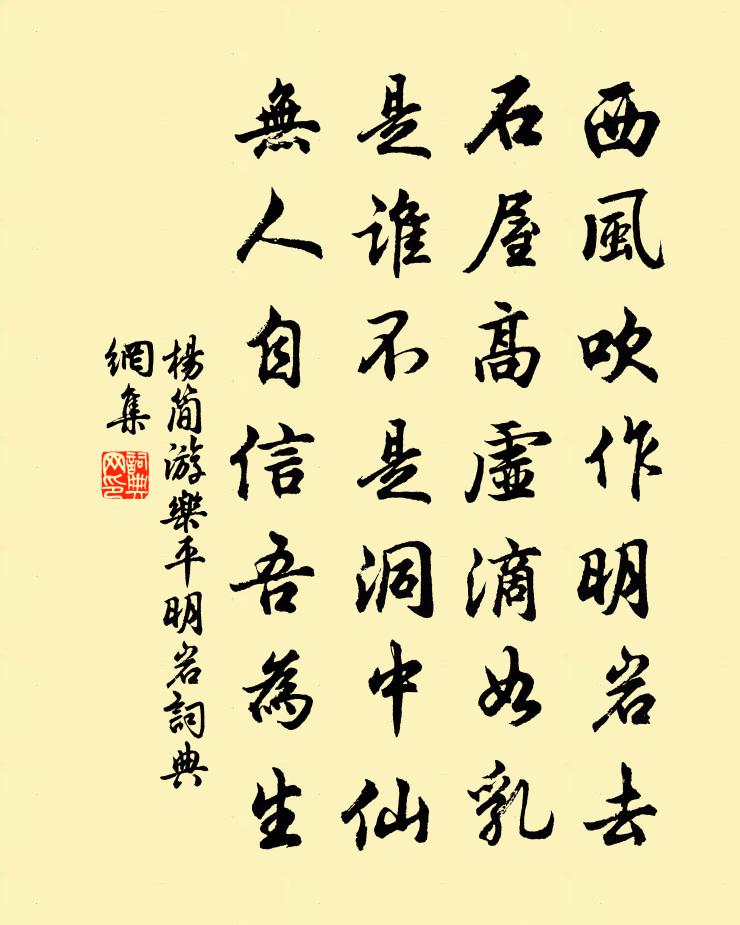 西風吹作明岩去
石屋高虛滴如乳
是誰不是洞中仙
無人自信吾為生
楊简游樂平明岩詞典
網集
詞典網印